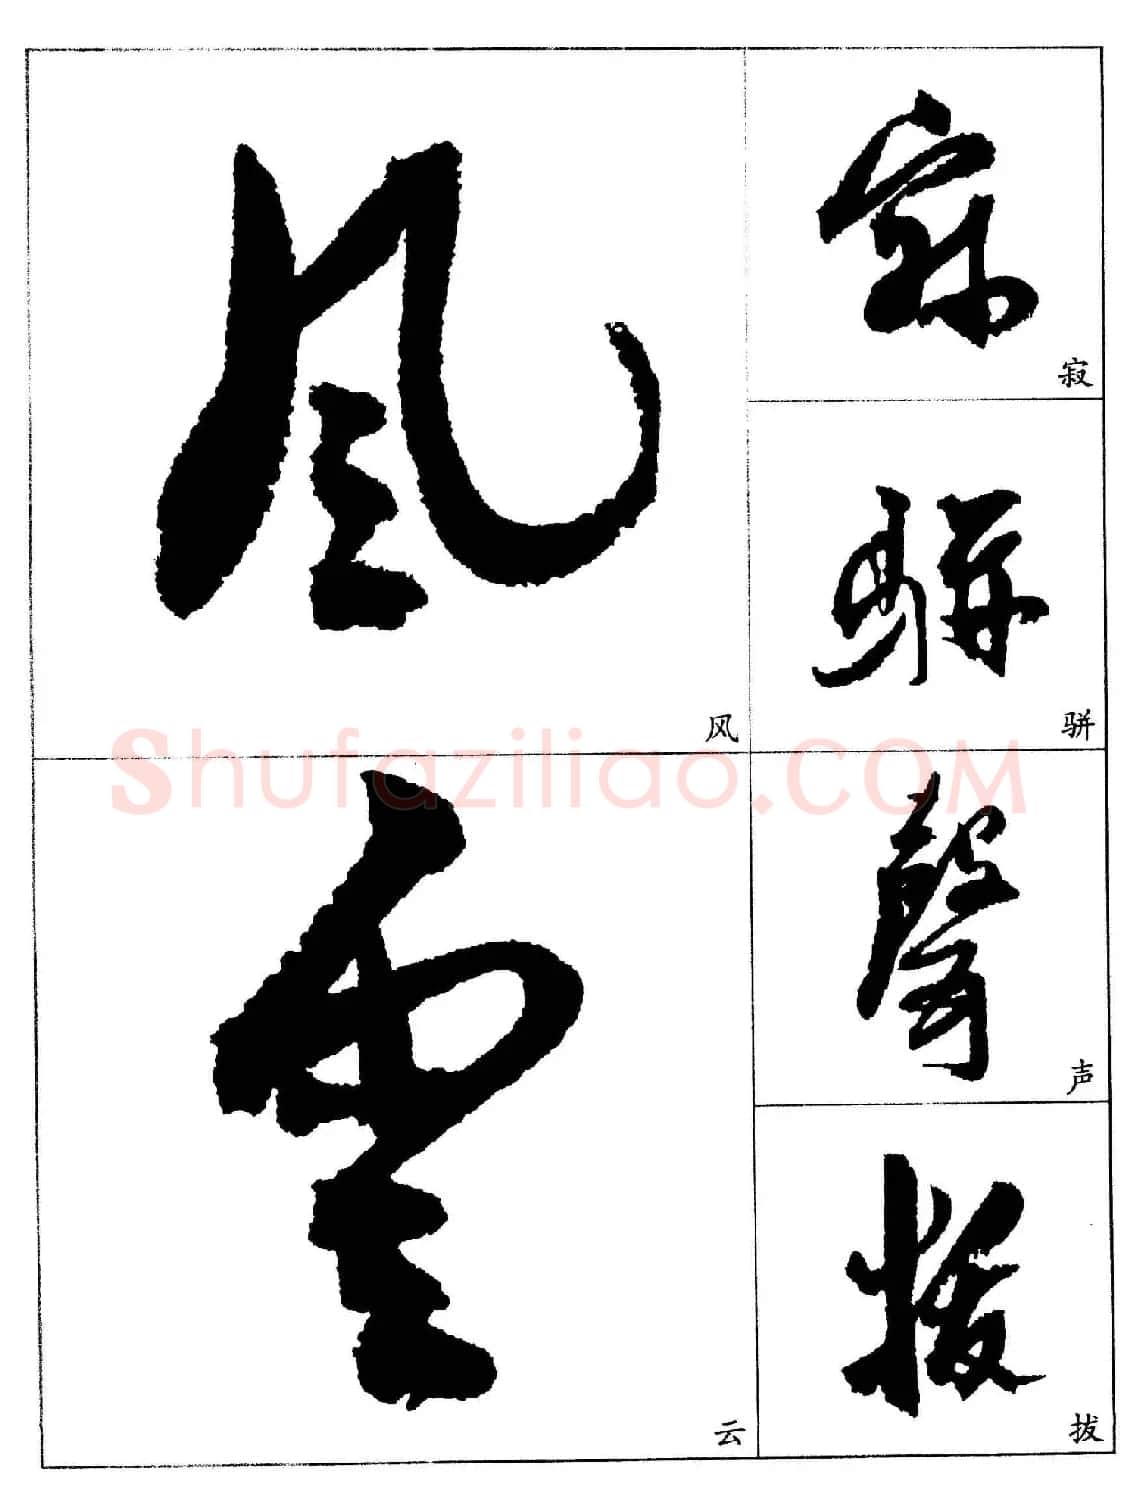 寂
寂
骈
骈
聲
声
拔
拔
風
风
雲
云
Shufaziliao.COM